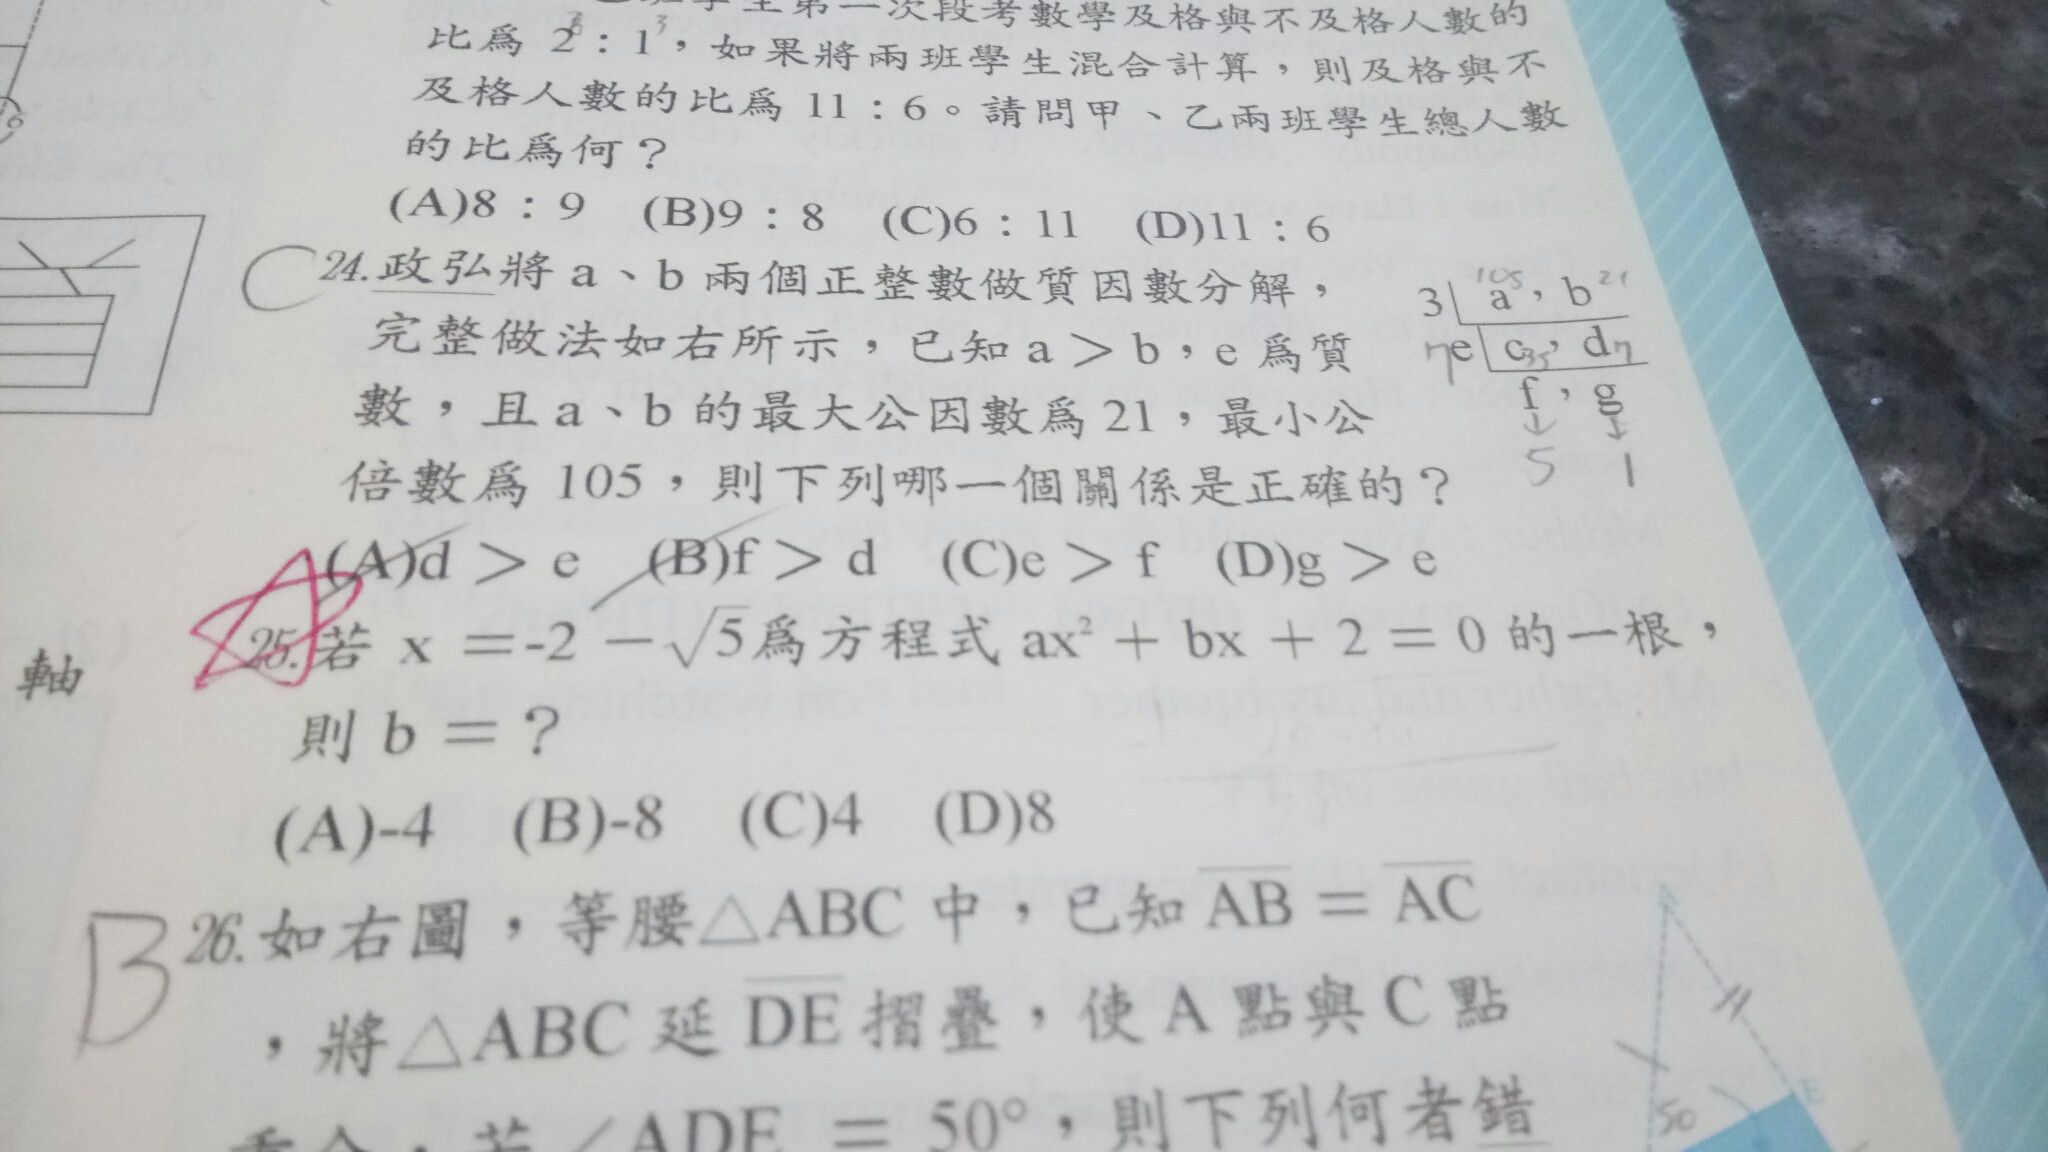 班學生第一次段考數學及格與不及格人數的
比為 2 : 1,如果將兩班學生混合計算,則及格與不
及格人數的比為 11 : 6。請問甲、乙兩班學生總人數
的比為何?
(A)8 : 9 (B)9 : 8 (C)6 : 11 (D)11 : 6
C 24. 政弘將 a、b 兩個正整數做質因數分解,
完整做法如右所示,已知 a > b,e 為質
數,且 a、b 的最大公因數為 21,最小公
倍數為 105,則下列哪一個關係是正確的?
105 21
3 a , b
7 e c 35 , d 7
f , g
5 1
(A)d > e (B)f > d (C)e > f (D)g > e
25. 若 x =-2 -√5為方程式 ax² + bx + 2 = 0 的一根,
則 b = ?
(A)-4 (B)-8 (C)4 (D)8
軸
B 26. 如右圖,等腰△ABC 中,已知 AB = AC
,將△ABC 延 DE 摺疊,使 A 點與 C 點
重合,若∠ADE = 50°,則下列何者錯
E
50
6